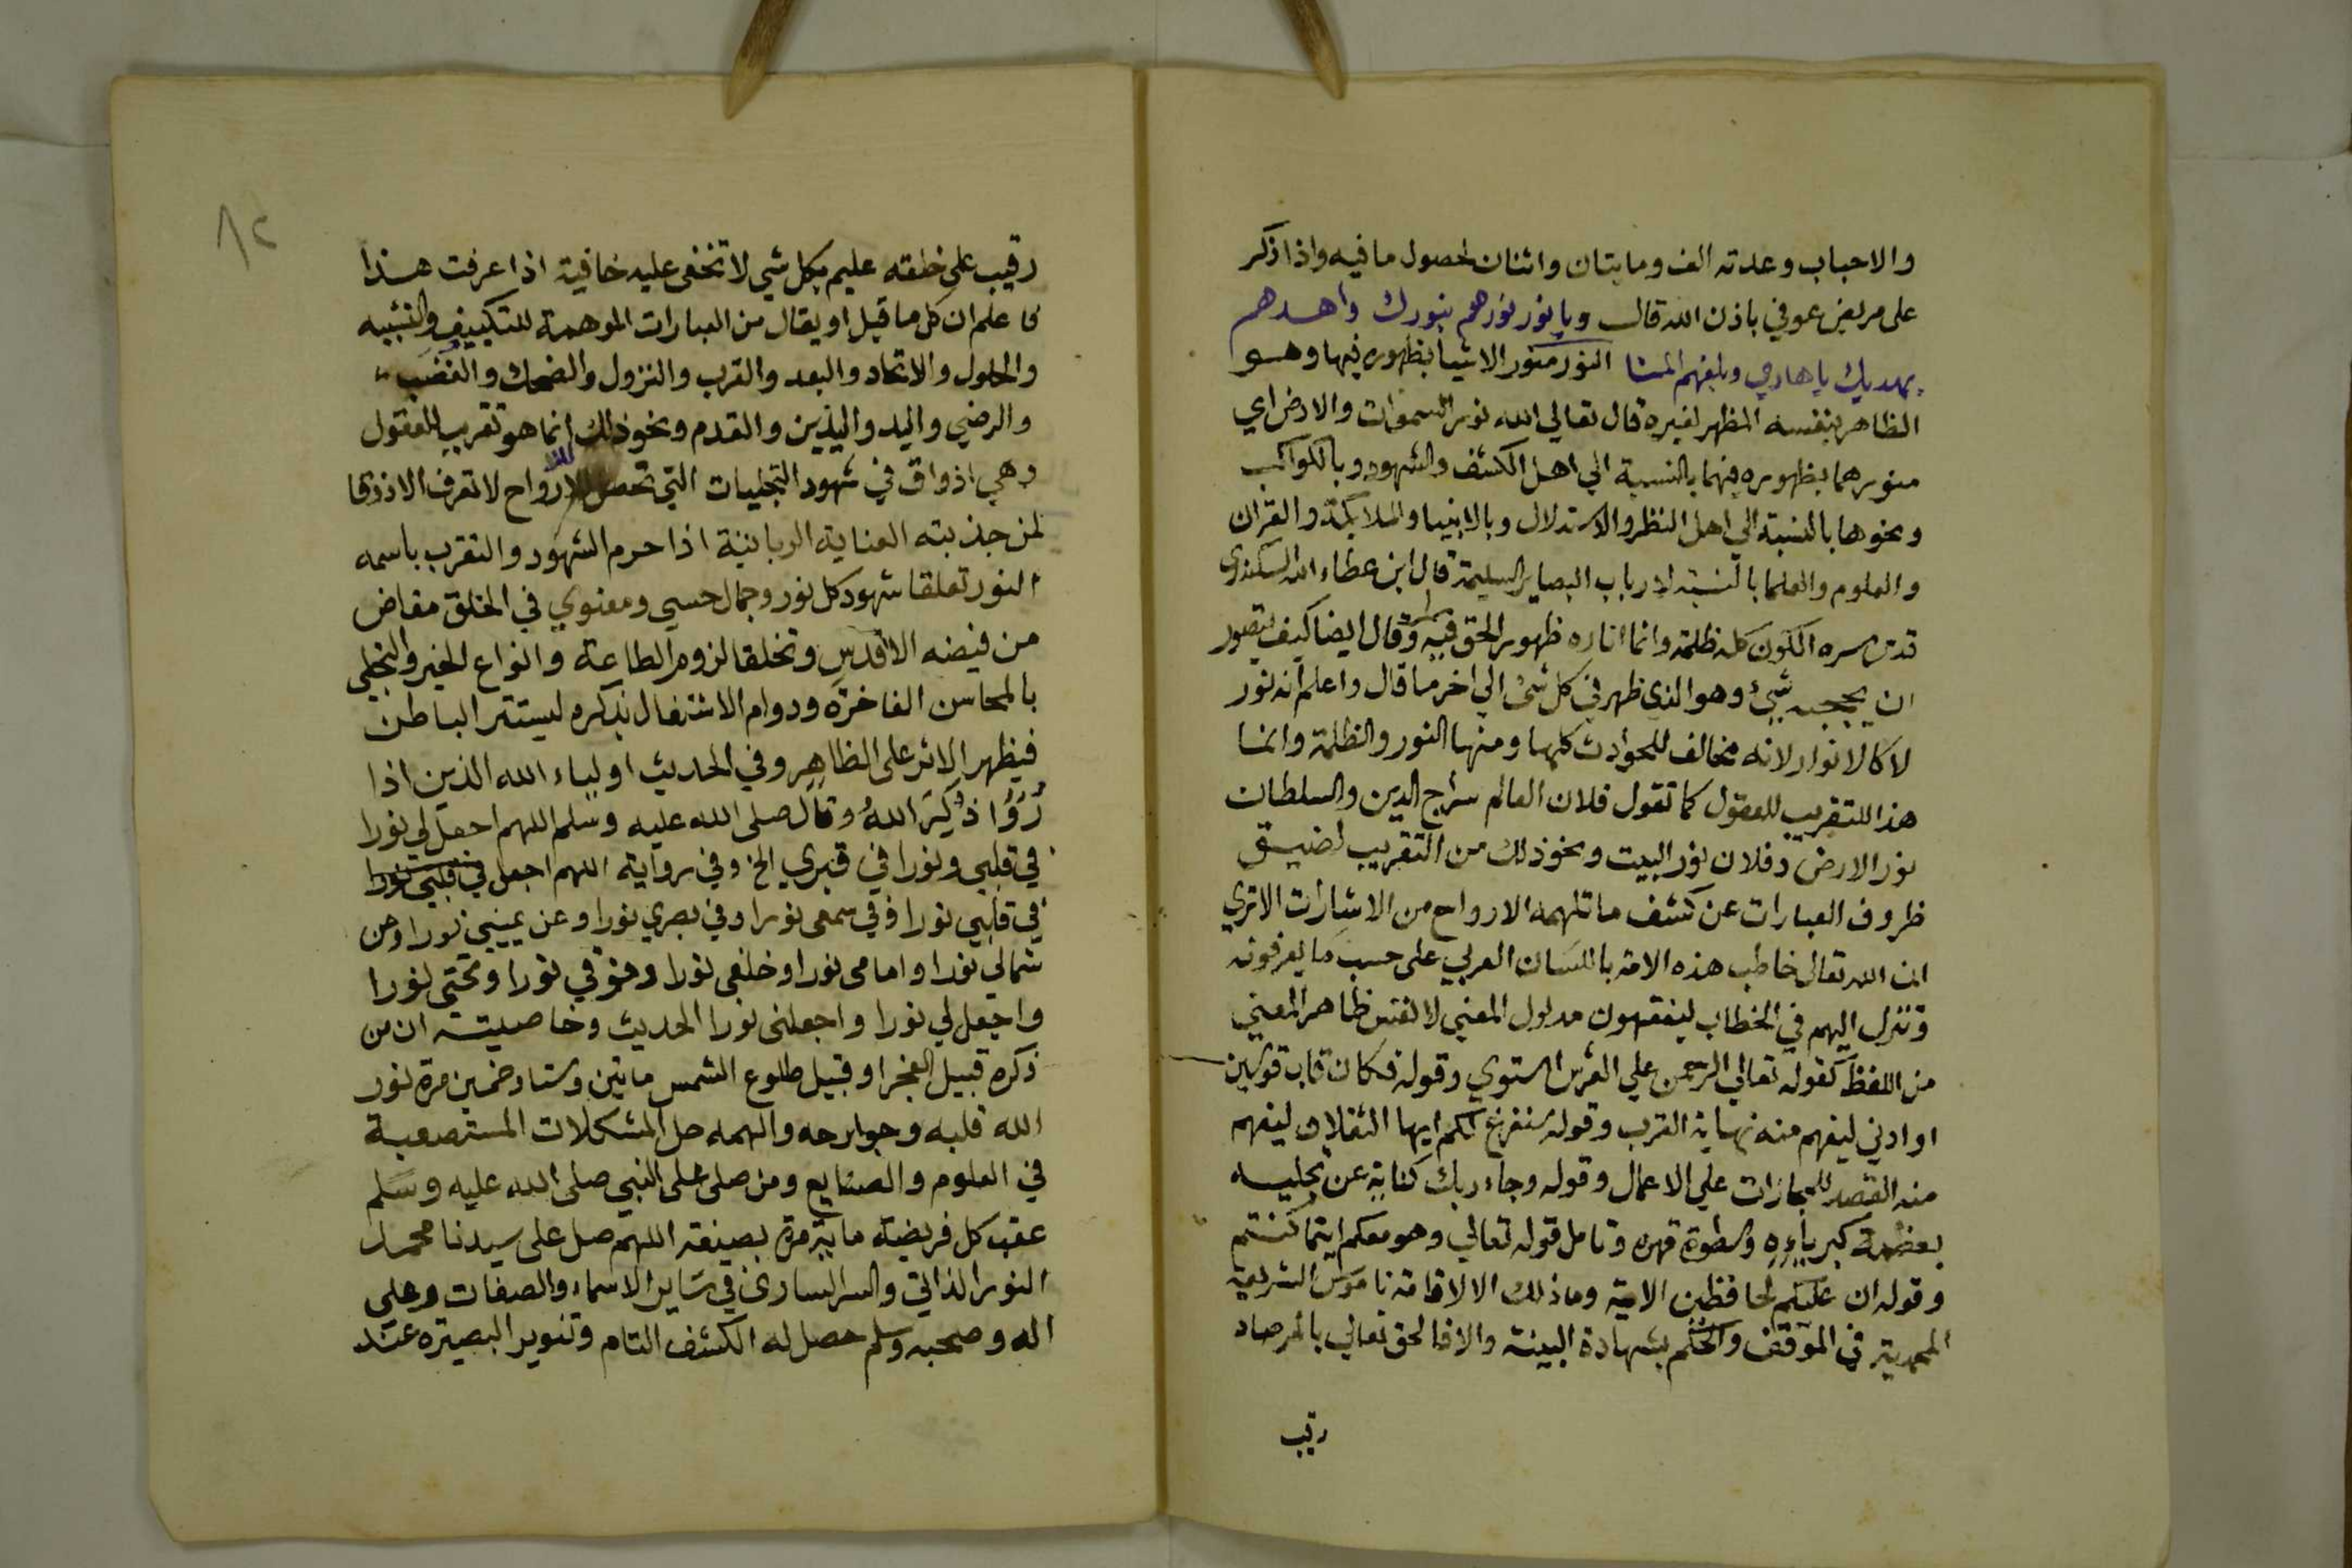 والاحباب وعدته الف ومايتان واثنان لحصول ما فيه واذا ذكر
على مريض عوفي باذن الله قال ويا نور نورهم بنورك واهدهم
بهديك يا هادي وبلغهم المنا النور منور الاشيا بظهوره فيها وهو
الظاهر بنفسه المظهر لغيره قال تعالي الله نور السموات والارض اي
منورهما بظهوره فيهما بالنسبة الي اهل الكشف والشهود وبالكواكب
ونحوها بالنسبة الي اهل النظر والاستدلال وبالانبيا والملايكة والقران
والعلوم والعلما بالنسبة لارباب البصاير السليمة قال ابن عطاء الله السكندري
قدس سره الكون كله ظلمة وانما اناره ظهور الحق فيه وقال ايضا كيف يتصور
ان يحجبه شيئ وهو الذي ظهر في كل شئ الي اخر ما قال واعلم انه نور
لا كالانوار لانه مخالف للحوادث كلها ومنها النور والظلمة وانما
هذا للتقريب للعقول كما تقول فلان العالم سراج الدين والسلطان
نور الارض وفلان نور البيت ونحو ذلك من التقريب لضيق
ظروف العبارات عن كشف ما تلهمه الارواح من الاشارات الاتري
ان الله تعالى خاطب هذه الامة باللسان العربي على حسب ما يعرفونه
وتنزل اليهم في الخطاب ليفقهون مدلول المعني لا لنفس ظاهر المعني
من اللفظ كقوله تعالي الرحمن علي العرش استوي وقوله فكان قاب قوسين
او ادني ليفهم منه نهاية القرب وقوله سنفرغ لكم ايها الثقلان ليفهم
منه القصد للمجازات علي الاعمال وقوله وجاء ربك كناية عن تجليه
بعظمة كبرياءه وسطوة قهره وتامل قوله تعالي وهو معكم اينما كنتم
وقوله ان عليكم لحافظين الاية وما ذلك الا لاقامة ناموس الشريعة
المحمدية في الموقف والحكم بشهادة البينة والا فالحق تعالي بالمرصاد
رقيب
٨٢
رقيب على خلقه عليم بكل شي لا تخفى عليه خافية اذا عرفت هذا
فاعلم ان كل ما قيل او يقال من العبارات الموهمة للتكييف والتشبيه
والحلول والاتحاد والبعد والقرب والنزول والضحك والغضب
والرضي واليد واليدين والقدم ونحو ذلك انما هو تقريب للعقول
وهي اذواق في شهود التجليات التي تحصل للارواح لا تعرف الا ذوقا
لمن جذبته العناية الربانية اذا حرم الشهود والتقرب باسمه
النور تعلقا شهود كل نور وجمال حسي ومعنوي في الخلق مفاض
من فيضه الاقدس وتخلقا لزوم الطاعة وانواع الخير والتحلي
بالمحاسن الفاخرة ودوام الاشتغال بذكره ليستنر الباطن
فيظهر الاثر على الظاهر وفي الحديث اولياء الله الذين اذا
رُؤُا ذُكِرَ اللهُ وقال صلى الله عليه وسلم اللهم اجعل لي نورا
في قلبي ونورا في قبري الخ وفي رواية اللهم اجعل في قلبي نورا
في قلبي نورا وفي سمعى نورا وفي بصري نورا وعن يميني نورا وعن
شمالي نورا وامامى نورا وخلفى نورا وفوقي نورا وتحتى نورا
واجعل لي نورا واجعلنى نورا الحديث وخاصيته ان من
ذكره قبيل الفجر او قبيل طلوع الشمس مايتين وستا وخمسين مرة نور
الله قلبه وجوارحه والهمه حل المشكلات المستصعبة
في العلوم والصنايع ومن صلى على النبي صلى الله عليه وسلم
عقب كل فريضة ماية مرة بصيغة اللهم صل على سيدنا محمد
النور الذاتي والسر الساري في ساير الاسماء والصفات وعلى
اله وصحبه وسلم حصل له الكشف التام وتنوير البصيرة عند